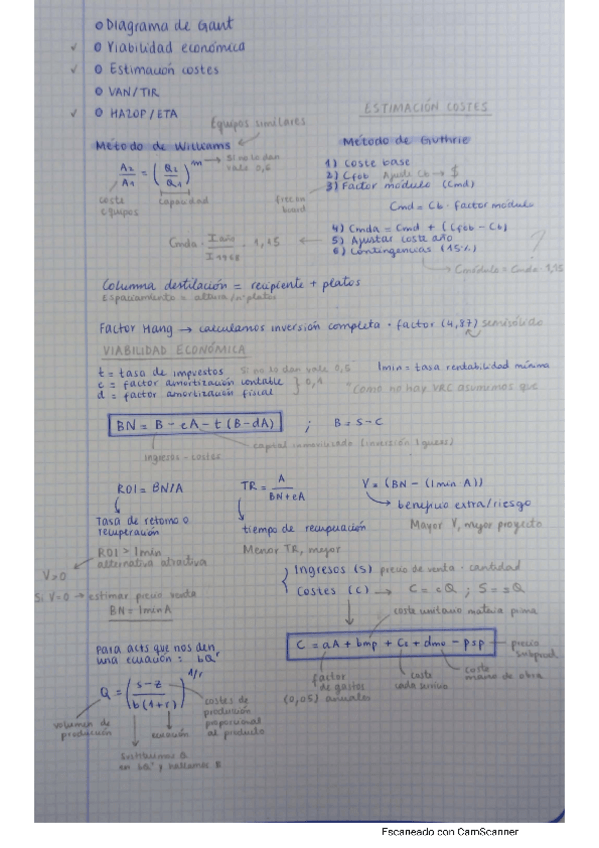 o Diagrama de Gant
✓ o Viabilidad económica
✓ o Estimación costes
o VAN/TIR
✓ o HAZOP/ETA
ESTIMACIÓN COSTES
Equipos similares
Método de Williams
A2/A1 = (Q2/Q1)^m → Si no lo dan vale 0,6
coste equipos
capacidad
Método de Guthrie
1) Coste base
2) Cfob Ajuste Cb → $
3) Factor módulo (Cmd)
free on board
Cmd = Cb · factor módulo
4) Cmda = Cmd + (Cfob - Cb)
5) Ajustar coste año
6) Contingencias (15%)
Cmda · I año/I 1968 · 1,15
?
Cmódulo = Cmda · 1,15
Columna destilación = recipiente + platos
Espaciamiento = altura/nº platos
Factor Hang → calculamos inversión completa · factor (4,87) semisólido
VIABILIDAD ECONÓMICA
t = tasa de impuestos Si no lo dan vale 0,5
Imin = tasa rentabilidad mínima
c = factor amortización contable
d = factor amortización fiscal } 0,1
"Como no hay VRC asumimos que
BN = B - eA - t(B-dA) ; B = S-C
ingresos - costes
capital inmovilizado (inversión 1 guess)
ROI = BN/A
TR = A/BN+eA
V = (BN - (Imin A))
→ beneficio extra/riesgo
Tasa de retorno o recuperación
tiempo de recuperación
Mayor V, mejor proyecto
ROI > Imin
alternativa atractiva
Menor TR, mejor
V>0
Si V=0 → estimar precio venta
BN = Imin A
Ingresos (S) precio de venta · cantidad
Costes (C) → C = cQ ; S = sQ
coste unitario materia prima
Para acts que nos den
una ecuación: bQ^r
C = aA + bmp + Cs + dmo - psp → precio subprod
factor de gastos anuales (0,05)
coste cada servicio
coste mano de obra
Q = (s-z/b(1+r))^1/r
costes de producción proporcional al producto
volumen de producción
ecuación
Sustituimos Q
Escaneado con CamScanner